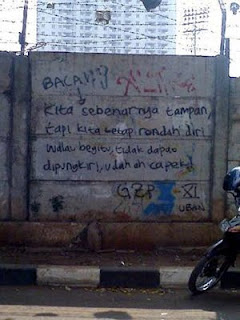 BACA!!!
kita sebenarnya tampan,
tapi kita tetap rendah diri
walau begitu, tidak dapat
dipungkiri, udah ah capek!
GZP XI
UBAN